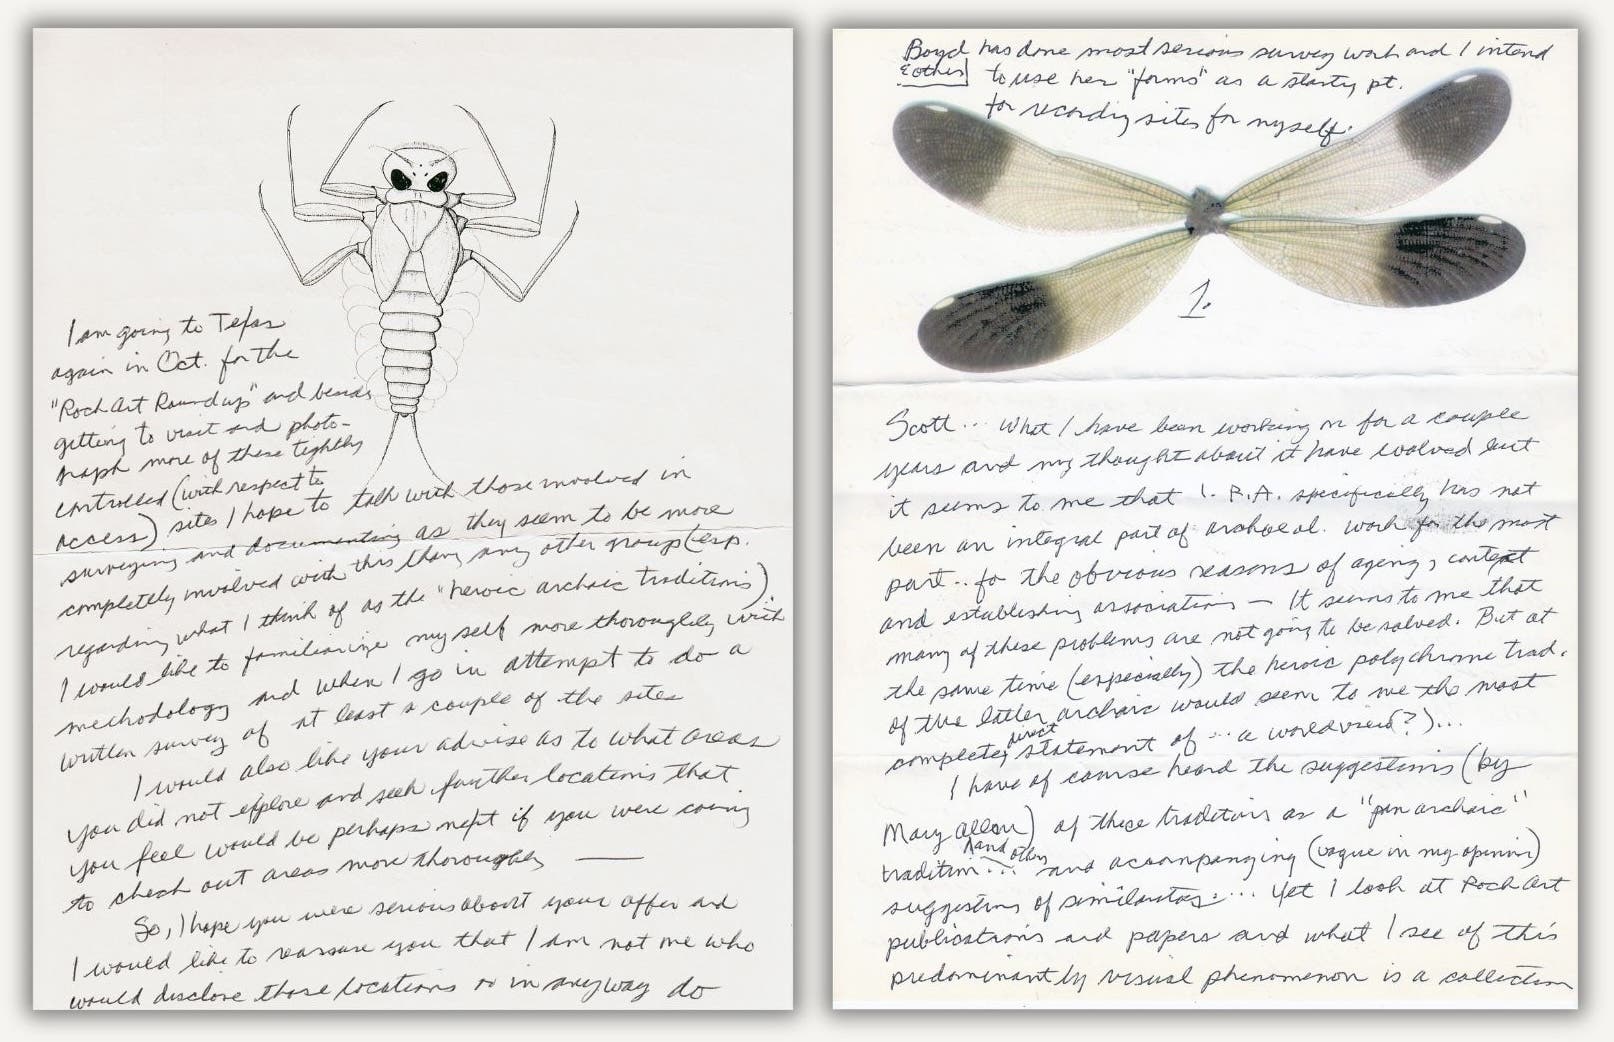 I am going to Texas
again in Oct. for the
"Rock Art Roundup" and besides
getting to visit and photo-
graph more of these tightly
controlled (with respect to
access) sites I hope to talk with those involved in
surveying and documenting as they seem to be more
completely involved with this than any other group (esp.
regarding what I think of as the "heroic archaic traditions).
I would like to familiarize myself more thoroughly with
methodology and when I go in attempt to do a
written survey of at least a couple of the sites
I would also like your advise as to what areas
you did not explore and seek further locations that
you feel would be perhaps next if you were coming
to check out areas more thoroughly —
So, I hope you were serious about your offer and
I would like to reassure you that I am not one who
would disclose those locations or in anyway do
Boyd has done most serious survey work and I intend
& others to use her "forms" as a starting pt.
for recording sites for myself.
1.
Scott... What I have been working on for a couple
years and my thought about it have evolved but
it seems to me that R.A. specifically has not
been an integral part of archaeol. work for the most
part.. for the obvious reasons of ageing, context
and establishing associations — It seems to me that
many of these problems are not going to be solved. But at
the same time (especially) the heroic polychrome trad.
of the latter archaic would seem to me the most
complete, direct statement of ... a worldview(?)...
I have of course heard the suggestions (by
Mary Allen) of these traditions as a "pan archaic"
tradition... and others and accompanying (vague in my opinion)
suggestions of similarities.... Yet I look at Rock Art
publications and papers and what I see of this
predominantly visual phenomenon is a collection